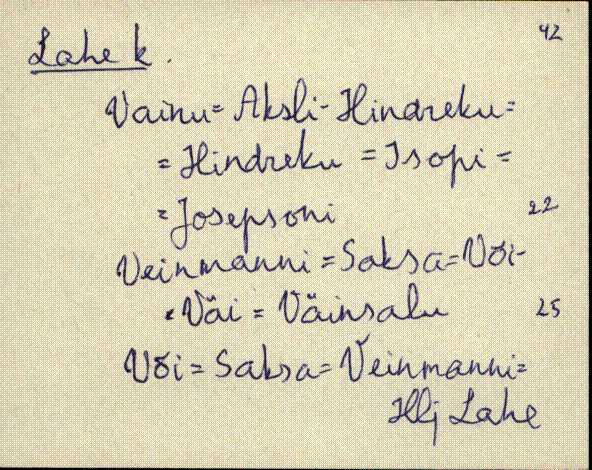 42
Lahe k.
Vainu = Aksli - Hindreku =
= Hindreku = Isopi =
= Josepsoni 22
Veinmanni = Saksa = Või -
= Väi = Väinsalu 25
Või = Saksa = Veinmanni =
Hlj Lahe